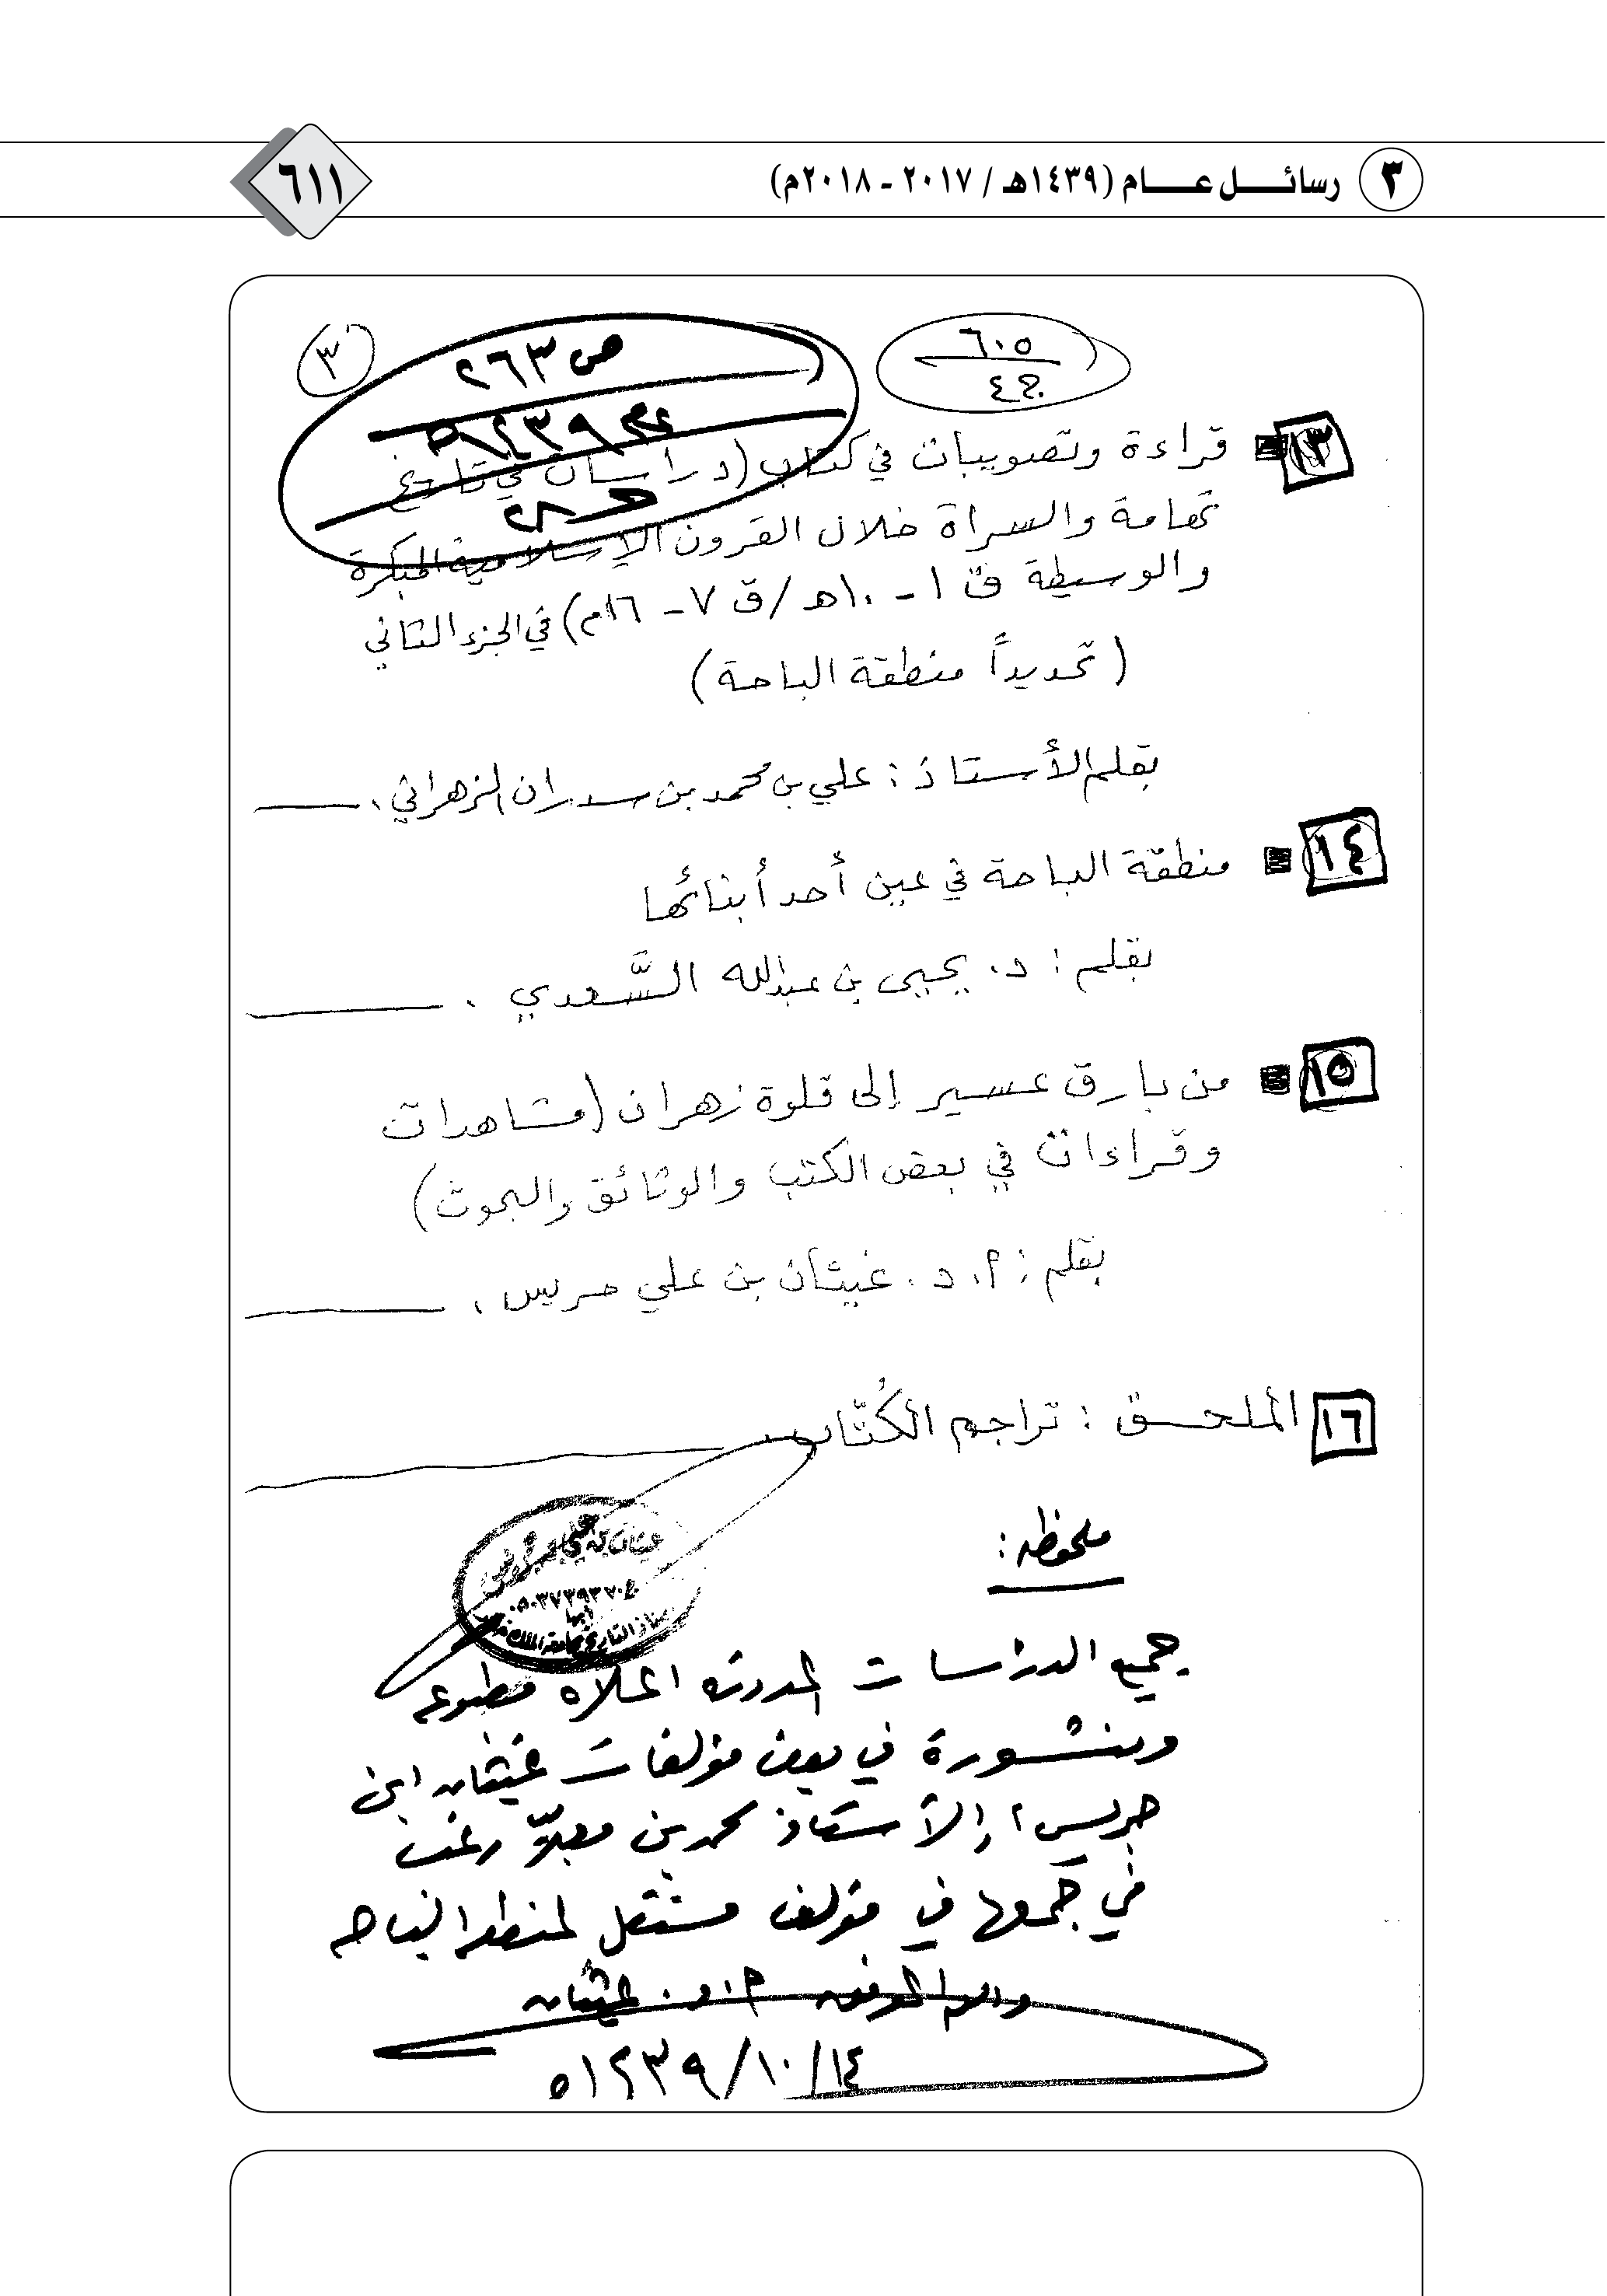 ٣ رسائل عام (١٤٣٩هـ / ٢٠١٧ - ٢٠١٨م)
٦١١
٦٠٥
ج٤
ص ٢٦٣
٣
١٣ قراءة وتصويبات في كتاب (دراسات في تاريخ
تهامة والسراة خلال القرون الإسلامية المبكرة
والوسيطة ق ١ - ١٠هـ / ق ٧ - ١٦م) في الجزء الثاني
(تحديداً منطقة الباحة)
بقلم الأستاذ : علي بن محمد بن سدران الزهراني .
١٤ منطقة الباحة في عين أحد أبنائها
بقلم : د. يحيى بن عبدالله السَّعدي .
١٥ من بارق عسير إلى قلوة زهران (مشاهدات
وقراءات في بعض الكتب والوثائق والبحوث)
بقلم : أ. د. غيثان بن علي جريس .
١٦ الملحق : تراجم الكُتّاب .
ملحوظه :
جميع الدراسات المدونه اعلاه مطبوعه
ومنشورة في بعض مؤلفات غيثان ابن
جريس، والأستاذ محمد بن معبر رغب
في جمعها في مؤلف مستقل لمنطقه الباحه
والله الموفق أ.د. غيثان
١٤/١٠/١٤٣٩ه